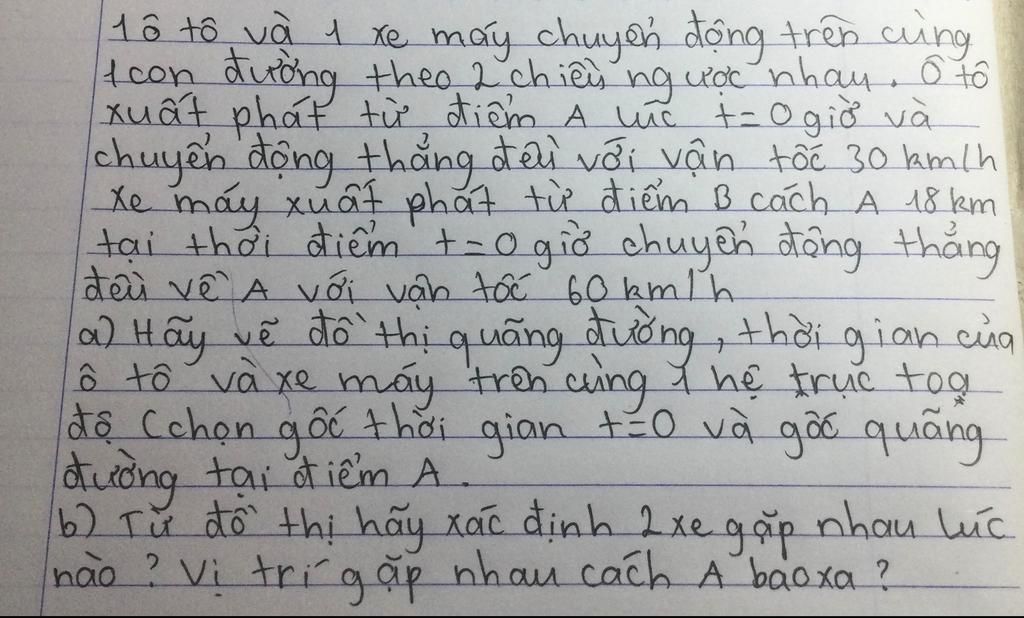 1 ô tô và 1 xe máy chuyển động trên cùng
1 con đường theo 2 chiều ngược nhau. Ô tô
xuất phát từ điểm A lúc t=0 giờ và
chuyển động thẳng đều với vận tốc 30 km/h
Xe máy xuất phát từ điểm B cách A 18 km
tại thời điểm t=0 giờ chuyển động thẳng
đều về A với vận tốc 60 km/h
a) Hãy vẽ đồ thị quãng đường, thời gian của
ô tô và xe máy trên cùng 1 hệ trục toạ
độ (chọn gốc thời gian t=0 và gốc quãng
đường tại điểm A.
b) Từ đồ thị hãy xác định 2 xe gặp nhau lúc
nào? Vị trí gặp nhau cách A bao xa?